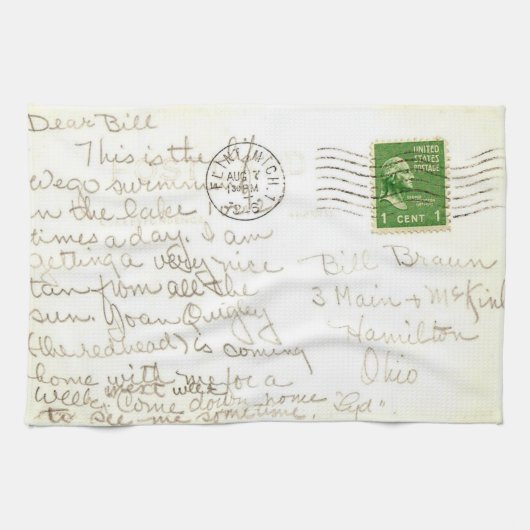 Dear Bill
This is the life
We go swimmin
in the lake
times a day. I am
getting a very nice
tan from all the
sun. Joan Quigley
(the redhead) is coming
home with me for a
week next week.
Come down home
to see me sometime. "Syd".
FLINT, MICH.
AUG 7
1 30 PM
UNITED
STATES
POSTAGE
1 CENT 1
Bill Braun
3 Main + McKinl
Hamilton
Ohio